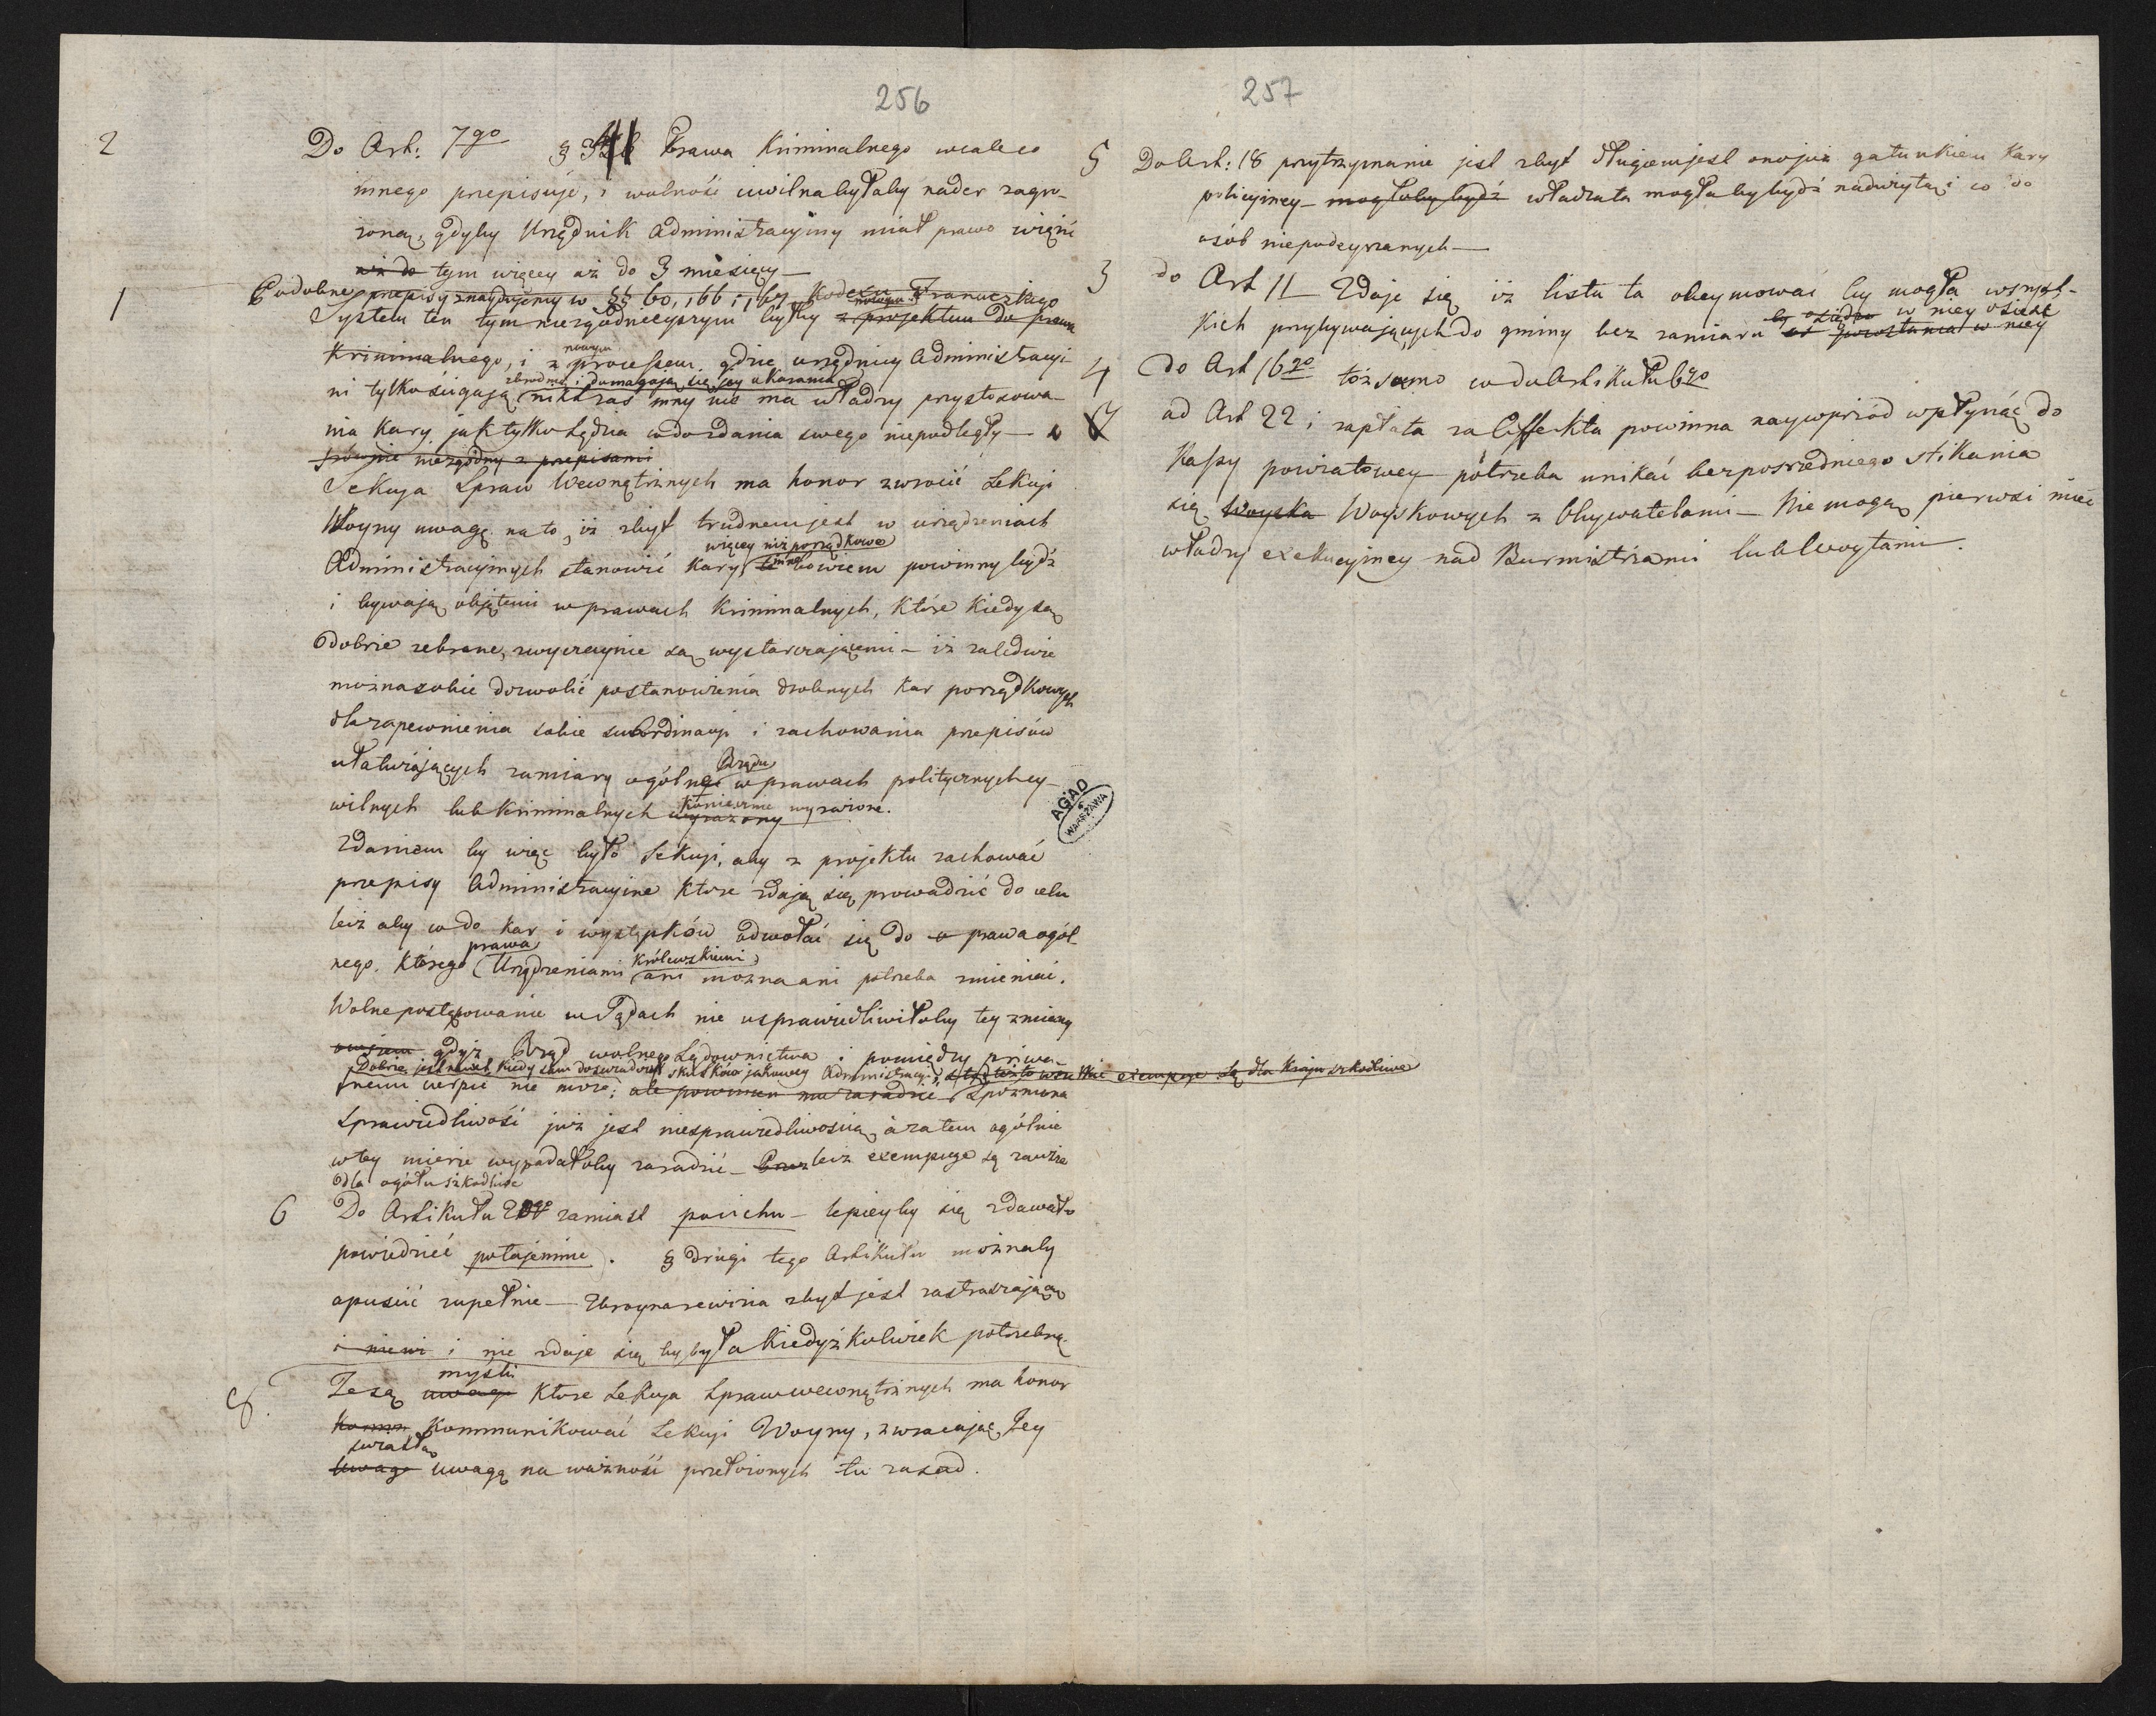 256
2
Do Art: 7go § Prawa Kriminalnego wcale co
innego przepisuje, i wolność cuwilna byłaby nader zagro-
żoną, gdyby Urzędnik Administracyiny miał prawo więzić
aż do tym więcey aż do 3 miesięcy—
1
Podobne przepisy znaydujemy w §§ 60, 166 i 169 Kodexu Francuzkiego
System ten tym niezgodnieyszym byłby z projektem do prawa
Kriminalnego, i z nowym processem gdzie urzędnicy Administracyi-
ni tylko ścigają zbrodnie i domagają się jey ukarania nikt zas inny nie ma władzy przystosowa-
nia Kary jak tylko Sędzia w do zdania swego niepodległy—
równie niezgodny z przepisami
Sekcya Spraw Wewnętrznych ma honor zwrócić Sekcyi
Woyny uwagę na to, iż zbyt trudnem jest w urządzeniach
Administracyinych stanowić Kary więcey niż porządkowe inne bowiem powinny bydź
i bywają objętemi w prawach Kriminalnych, które kiedy są
dobrze zebrane, zwyczaynie są wystarczającemi — iż zaledwie
można sobie dozwolić postanowienia drobnych kar porządkowych
dla zapewnienia sobie subordinacyi i zachowania przepisów
ułatwiających zamiary ogólne Rządu w prawach politycznych cy-
wilnych lub Kriminalnych wyrażony koniecznie wyrażone.
Zdaniem by więc było Sekcyi, aby z projektu zachować
przepisy Administracyine które zdają się prowadzić do celu
lecz aby co do kar i występków odwołać się do prawa ogól-
nego, którego prawa Urządzeniami Królewskiemi ani można ani potrzeba zmieniać.
Wolne postępowanie w Sądach nie usprawiedliwiłoby tey zmiany
owszem gdyż Rząd wolnego Sądownictwa i pomiędzy priwa-
Dobrze jest nawet kiedy sam doświadcza skutków jakowey Administracyi, exempcye są dla Kraju szkodliwe
tnemi cierpieć nie może; ale powinien mu zaradzić Spozniona
Sprawiedliwość już jest niesprawiedliwością, a zatem ogólnie
w tey mierze wypadałoby zaradzić — lecz exempcye są zawsze
dla ogółu szkodliwe
6
Do Artikułu zamiast pocichu — lepieyby się zdawało
powiedzieć potajemnie. § drugi tego Artikułu możnaby
opuścić zupełnie — Zbroyna rewizia zbyt jest zastraszającą
i nie zdaje się by była kiedyżkolwiek potrzebną.
8.
Te są uwagi myśli które Sekcya Spraw wewnętrznych ma honor
Kommunikować Sekcyi Woyny, zwracając Jey
uwagę na ważność przełożonych tu zasad.
AGAD
WARSZAWA
257
5
Do Art: 18 przytrzymanie jest zbyt długiem jest ono już gatunkiem Kary
policyiney — mogłoby bydź władza ta mogła by bydź nadużytą i co do
osób niepodeyrzanych—
3
do Art 11 Zdaje się iż lista ta obeymować by mogła wszyst-
kich przybywających do gminy bez zamiaru pozostania w niey w niey osieść
4
do Art 16go toż samo co do Artikułu 6go
7
ad Art 22 i zapłata za Effekta powinna naywprzód wpłynąć do
Kassy powiatowey potrzeba unikać bezposredniego stikania
się Woyska Woyskowych z Obywatelami — Nie mogą pierwsi mieć
władzy exekucyiney nad Burmistrzami lub Woytami.